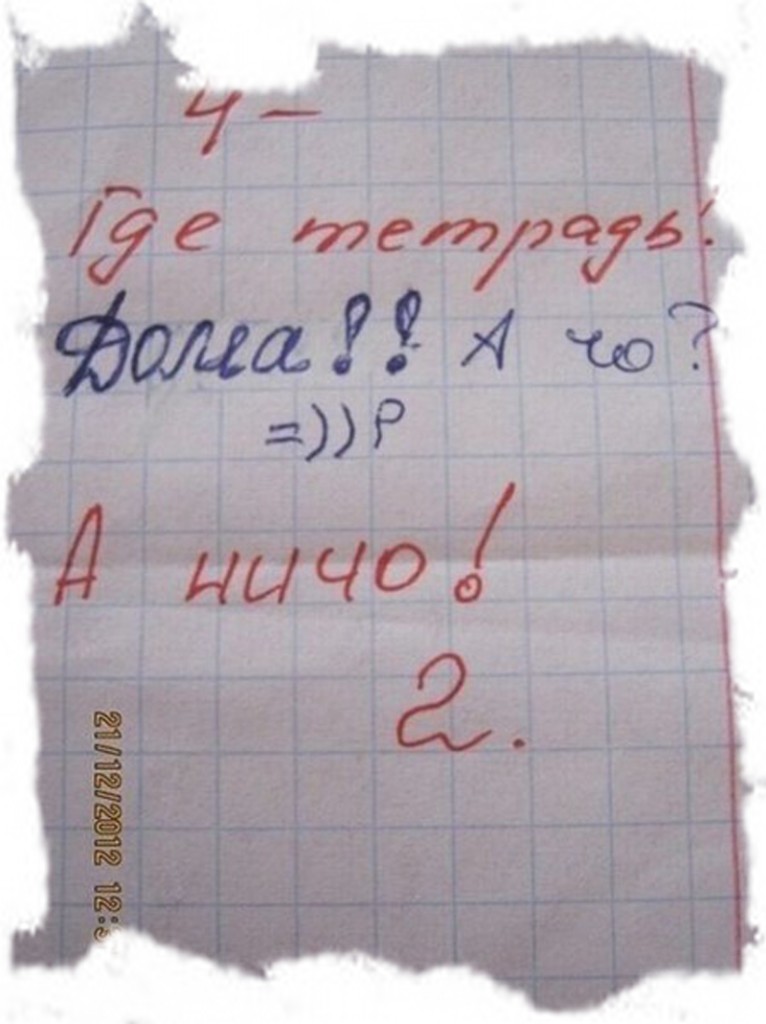 4-
Где тетрадь!
Дома!! А чо?
=))Р
А ничо!
2.
21/12/2012 12: